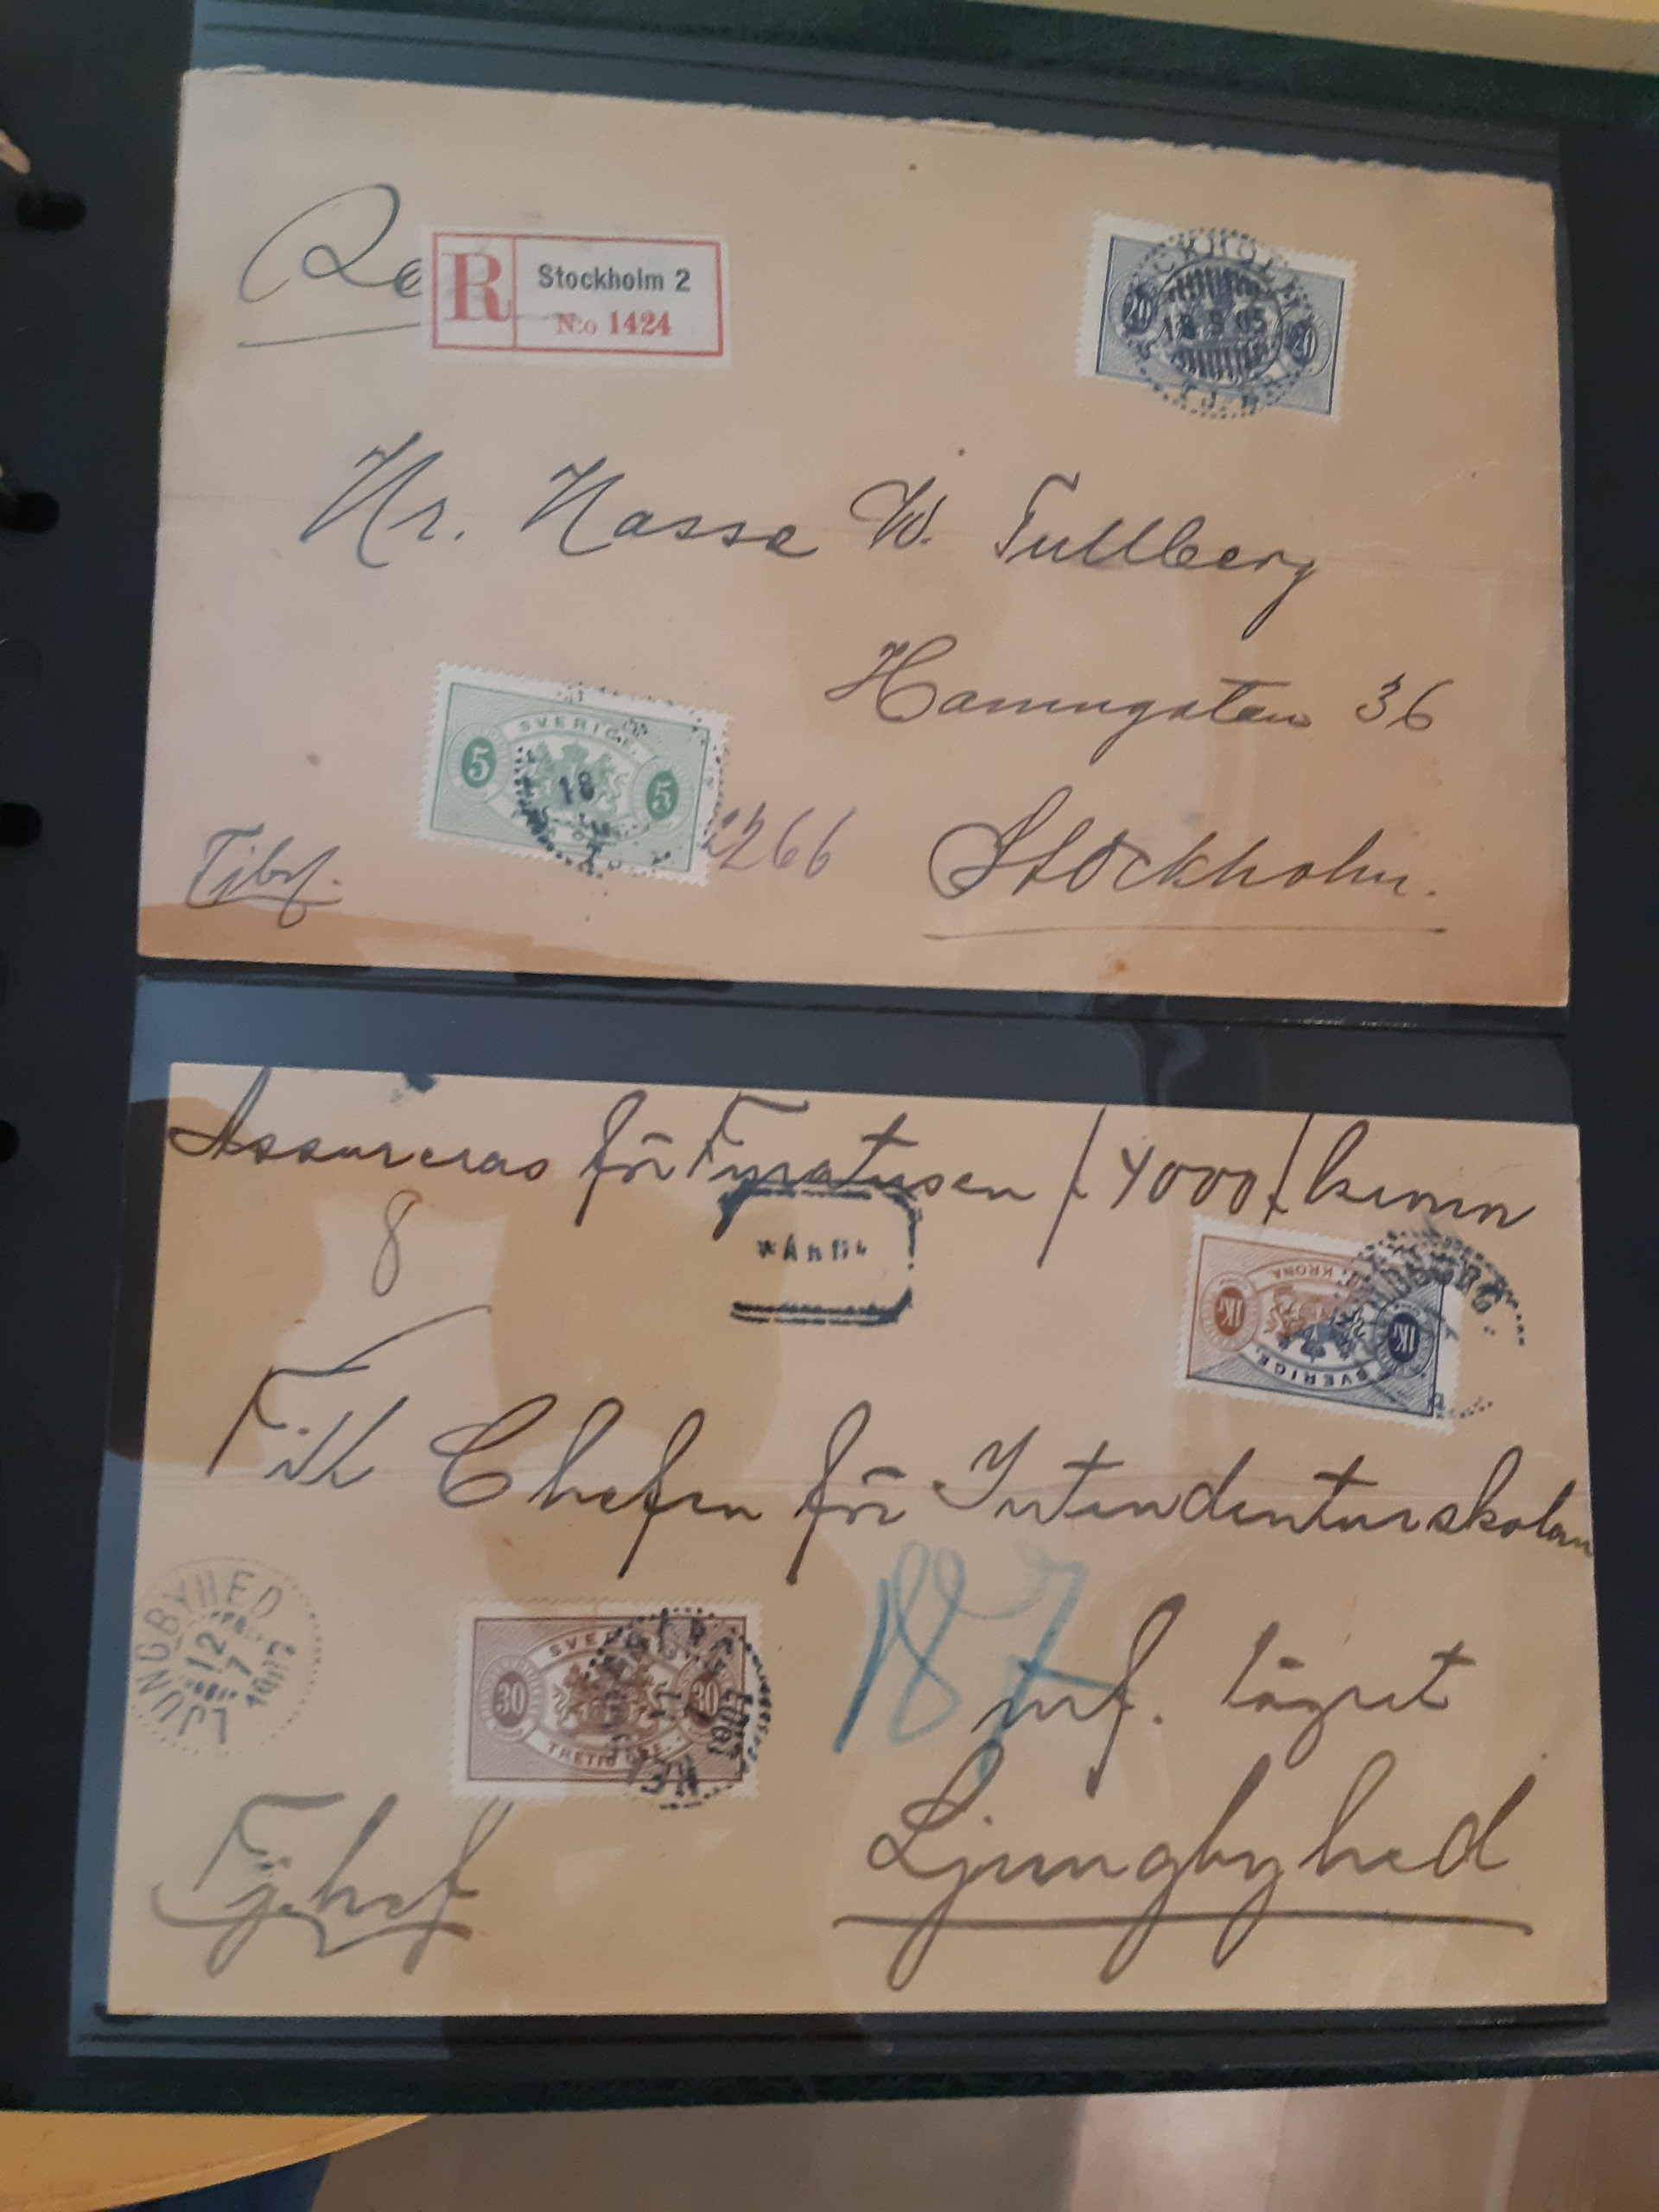 R Stockholm 2
N:o 1424
20 20
18 9 05
Hr. Hasse W. Tullberg
Hamngatan 36
SVERIGE
5 5
18
2266
Stockholm.
Tjbrf.
Assureras för Fyratusen /4000/ kronor
8
KRONA
1Kr 1Kr
SVERIGE
Till Chefen för Intendenturskolan
187
LJUNGBYHED
12
7
1907
30 30
TRETIO ÖRE.
1907
m.f. lägret
Ljungbyhed
Tjbref